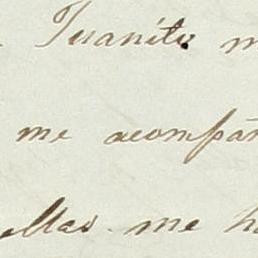 Juanito m
me acompañ
ellas me h